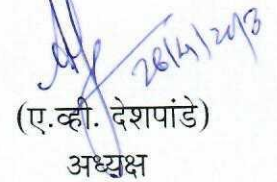 26/4/2013
(ए.व्ही. देशपांडे)
अध्यक्ष